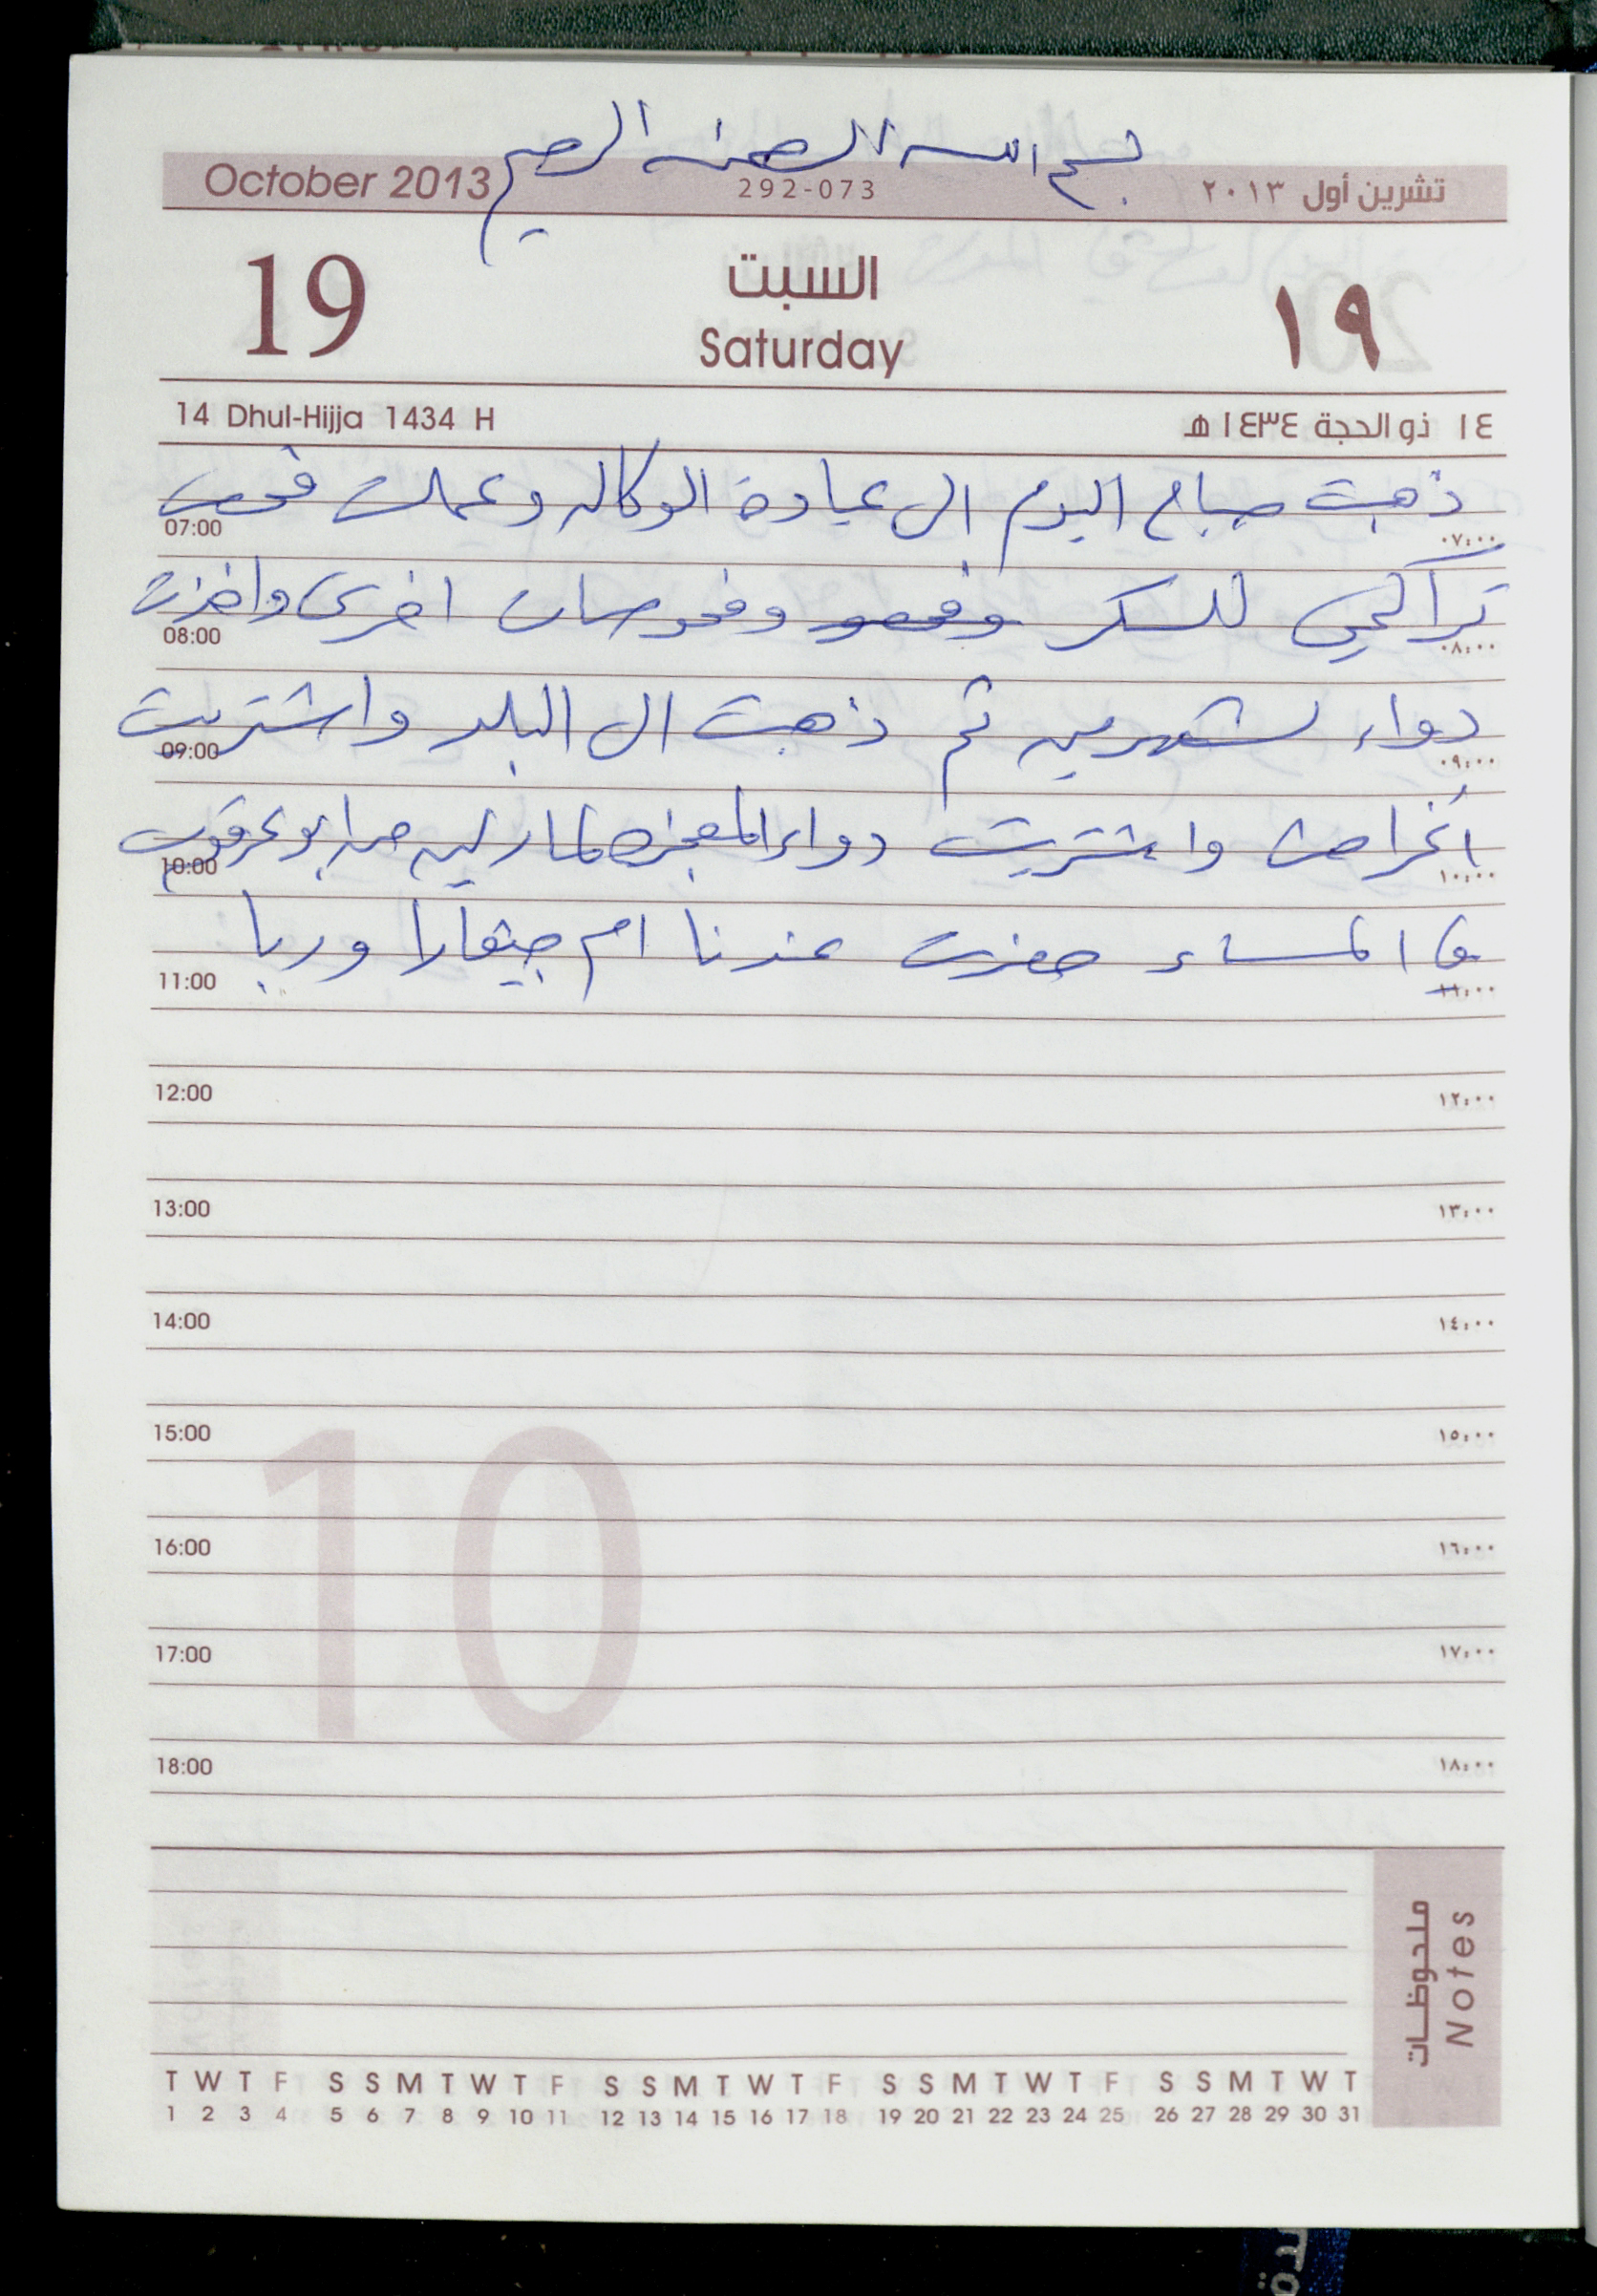 بسم الله الرحمن الرحيم
October 2013 292-073 تشرين أول ٢٠١٣
19 السبت ١٩
Saturday
14 Dhul-Hijja 1434 H ١٤ ذو الحجة ١٤٣٤ هـ
ذهبت صباح اليوم الى عيادة الوكاله وعملت فحص
07:00 ٠٧:٠٠
تراكمي للسكر وفحوصات اخرى واخذت
08:00 ٠٨:٠٠
دواء لشهرين ثم ذهبت الى البلد واشتريت
09:00 ٠٩:٠٠
اغراض واشتريت دواء المعجزه لمارلين من ابو عرقوب
10:00 ١٠:٠٠
في المساء حضرت عندنا ام جيفارا وربا
11:00 ١١:٠٠
12:00 ١٢:٠٠
13:00 ١٣:٠٠
14:00 ١٤:٠٠
15:00 ١٥:٠٠
10
16:00 ١٦:٠٠
17:00 ١٧:٠٠
18:00 ١٨:٠٠
ملحوظات
Notes
T W T F S S M T W T F S S M T W T F S S M T W T F S S M T W T
1 2 3 4 5 6 7 8 9 10 11 12 13 14 15 16 17 18 19 20 21 22 23 24 25 26 27 28 29 30 31